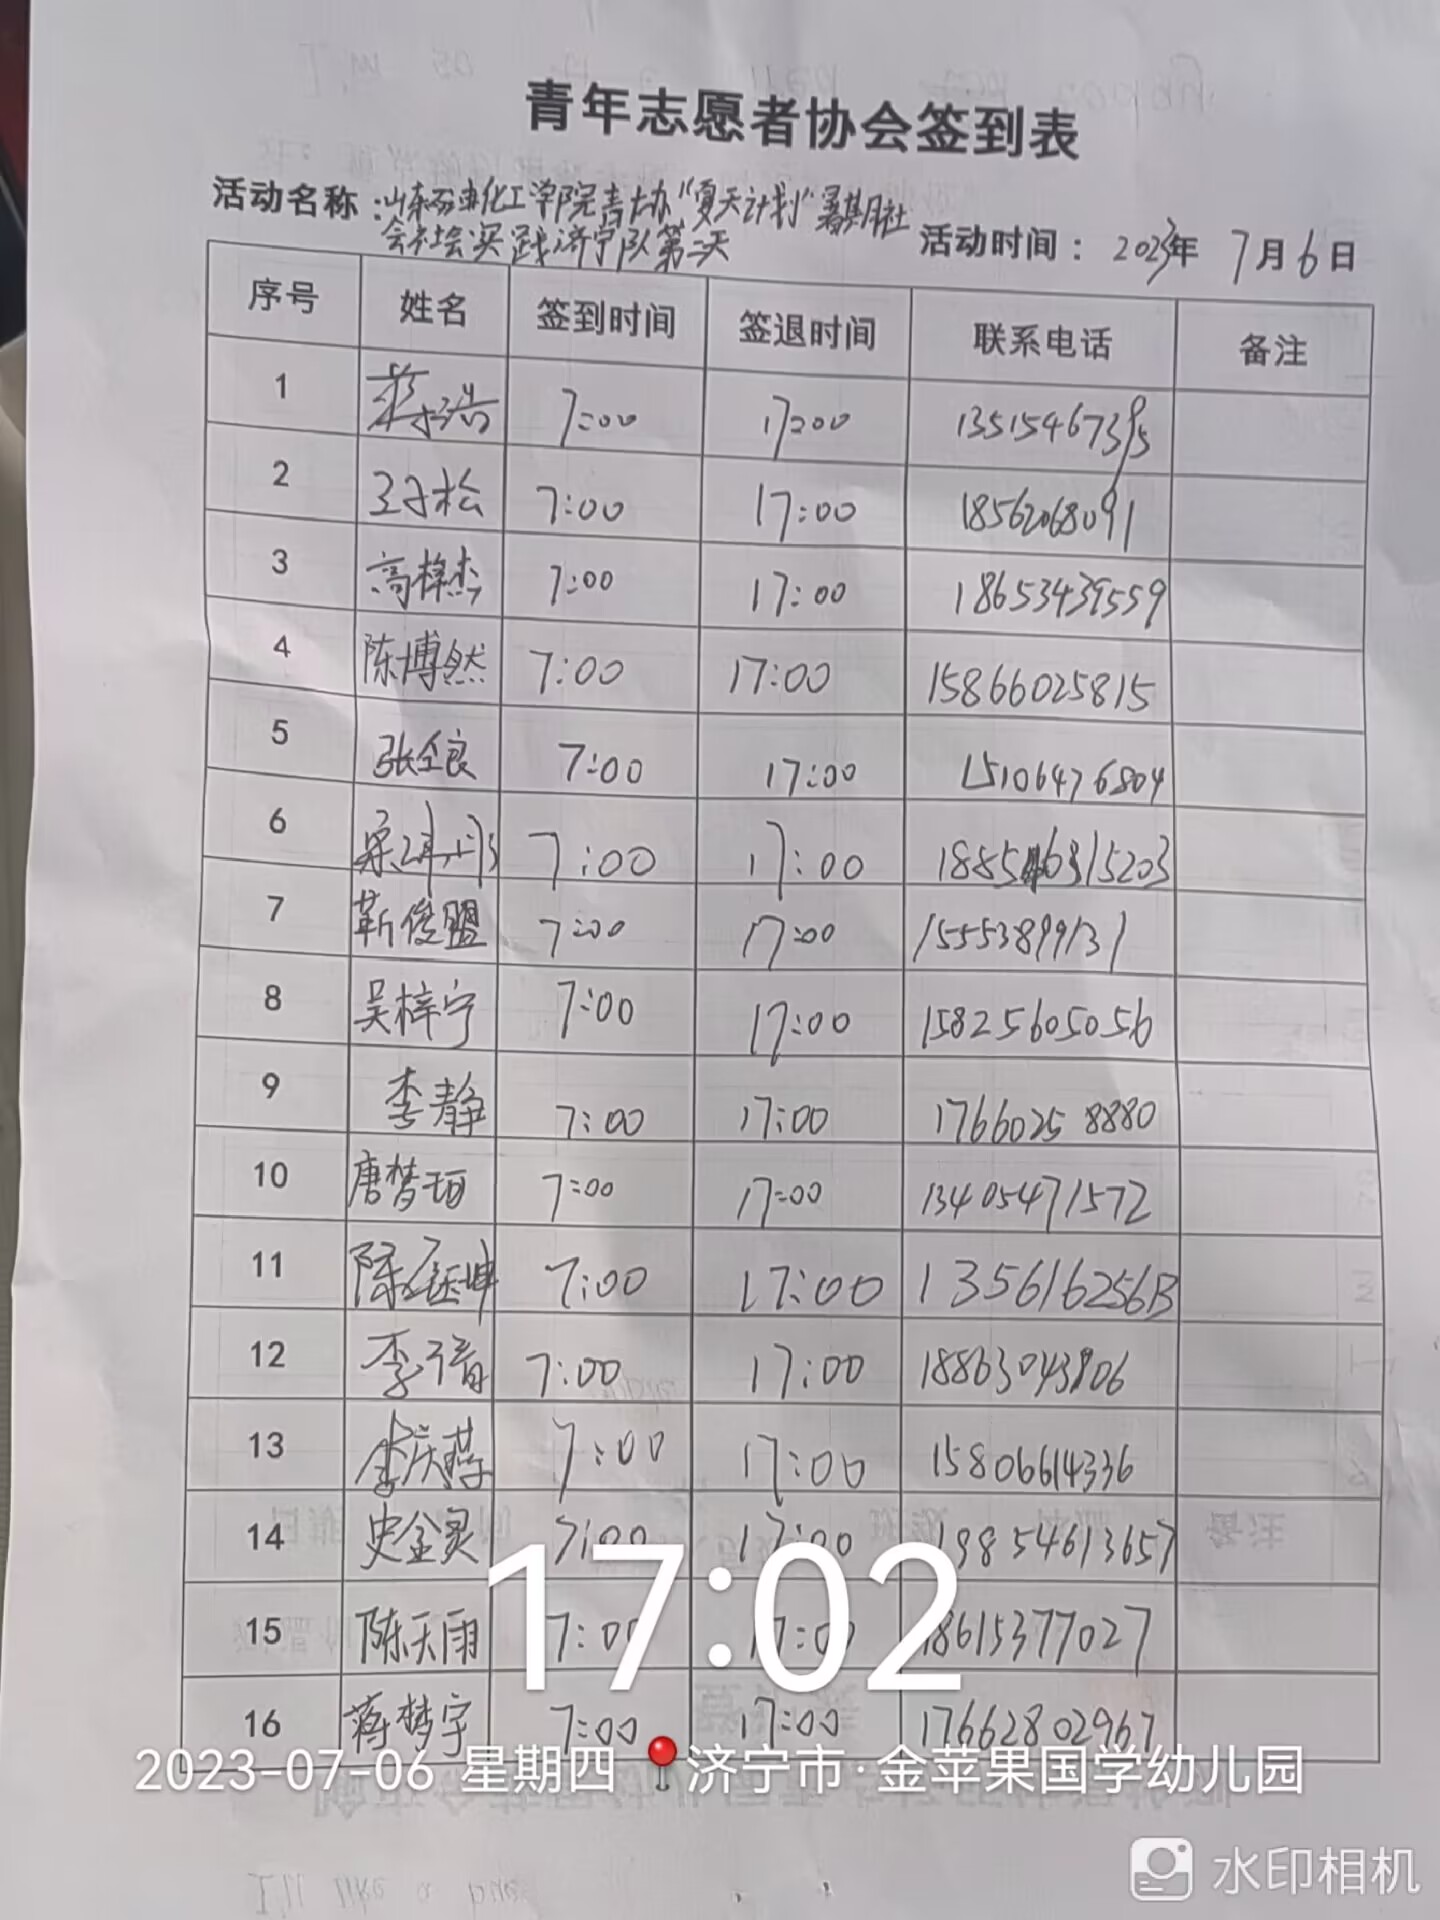 青年志愿者协会签到表
活动名称：山东石油化工学院青志协“夏天计划”暑期社
会社会实践济宁队第二天
活动时间： 2023年 7月6日
序号 姓名 签到时间 签退时间 联系电话 备注
1 7:00 17:00
2 王子松 7:00 17:00 18562068091
3 高梓杰 7:00 17:00 18653439559
4 陈博然 7:00 17:00 15866025815
5 张全良 7:00 17:00 15106476804
6 7:00 17:00
7 靳俊盟 7:00 17:00 15553899131
8 吴梓宁 7:00 17:00 15825605056
9 李静 7:00 17:00 17660258880
10 唐梦珂 7:00 17:00 13405471572
11 7:00 17:00
12 7:00 17:00
13 李庆燕 7:00 17:00 15806614336
14 史金灵 7:00 17:00 19854613657
15 陈天雨 7:00 17:00 18615377027
16 蒋梦宇 7:00 17:00 17662802967
17:02
2023-07-06 星期四 济宁市·金苹果国学幼儿园
水印相机